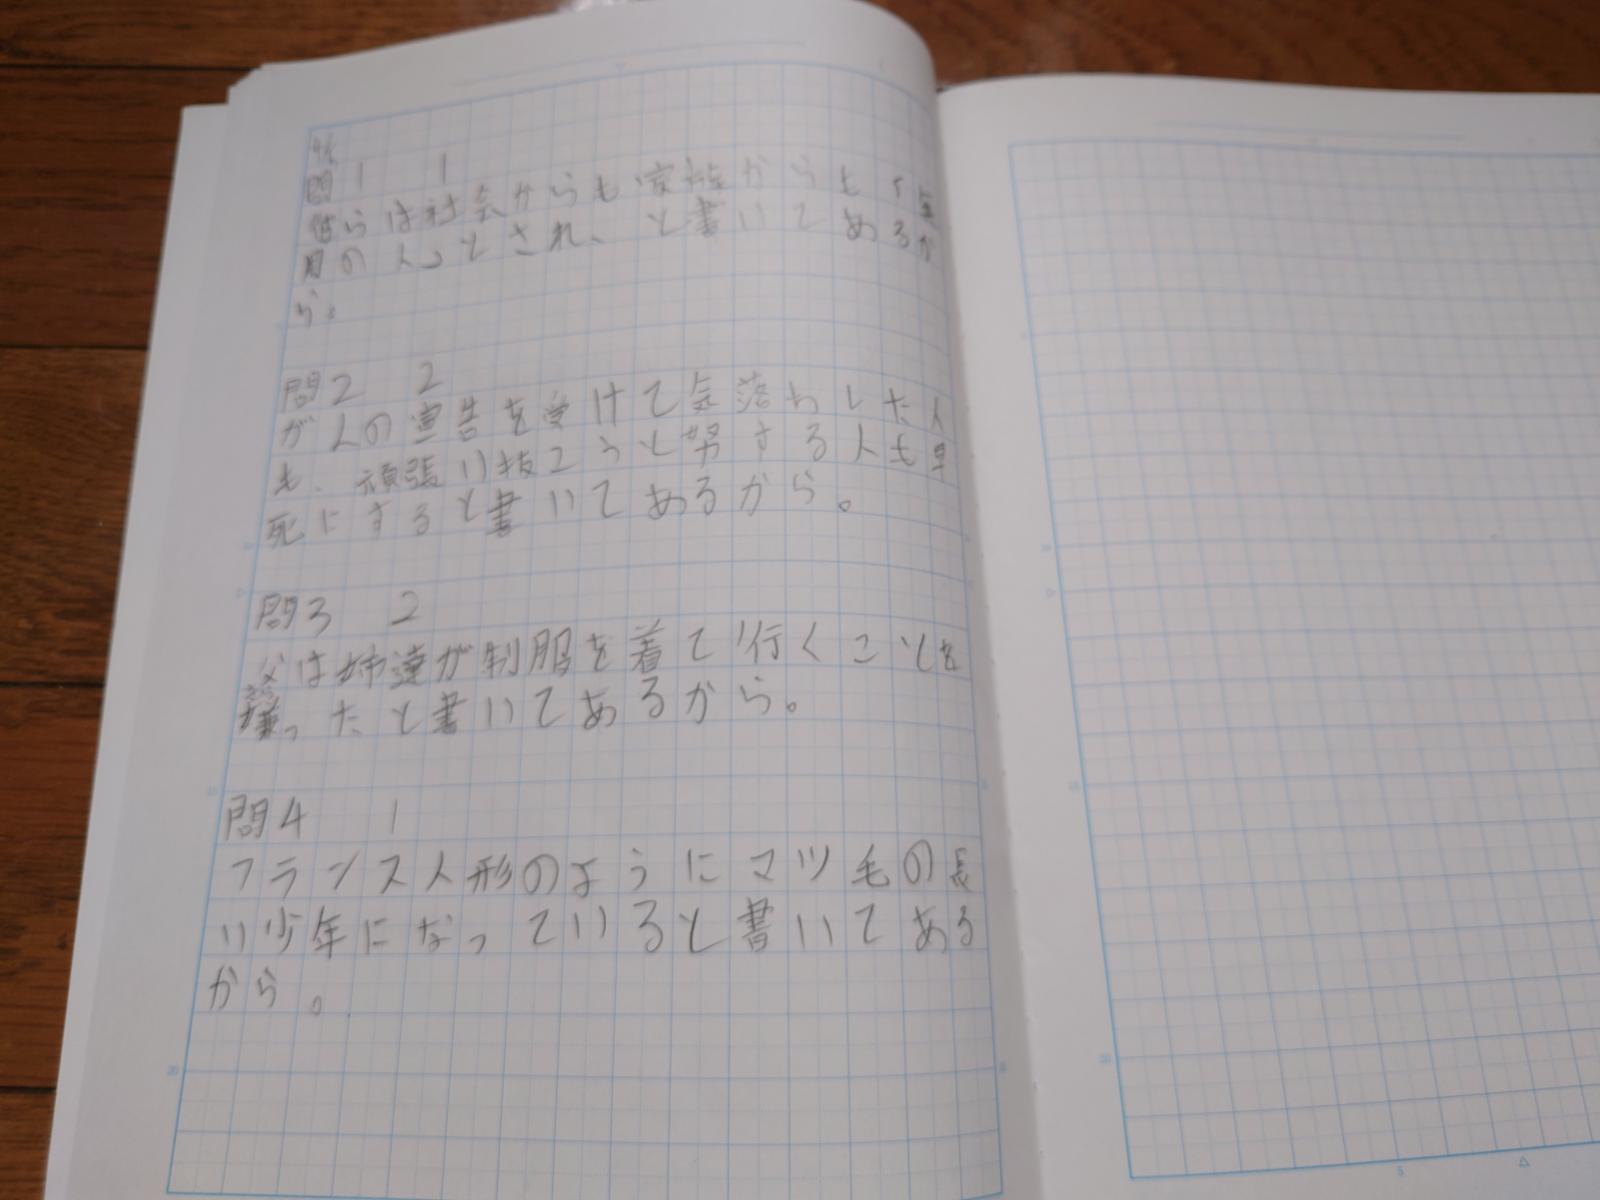 問1 1
彼らは社会からも家族からも「
の人」とされ、と書いてあるか
ら。
問2 2
がんの宣告を受けて気落ちした人
も、頑張り抜こうと努する人も早
死にすると書いてあるから。
問3 2
父は姉達が制服を着て行くことを
嫌ったと書いてあるから。
問4 1
フランス人形のようにマツ毛の長
い少年になっていると書いてある
から。
20
20
20
5